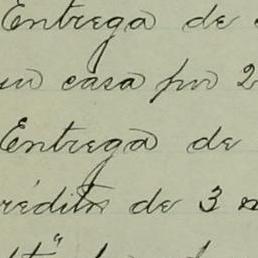 Entrega de
casa por 2
Entrega de
réditos de 3